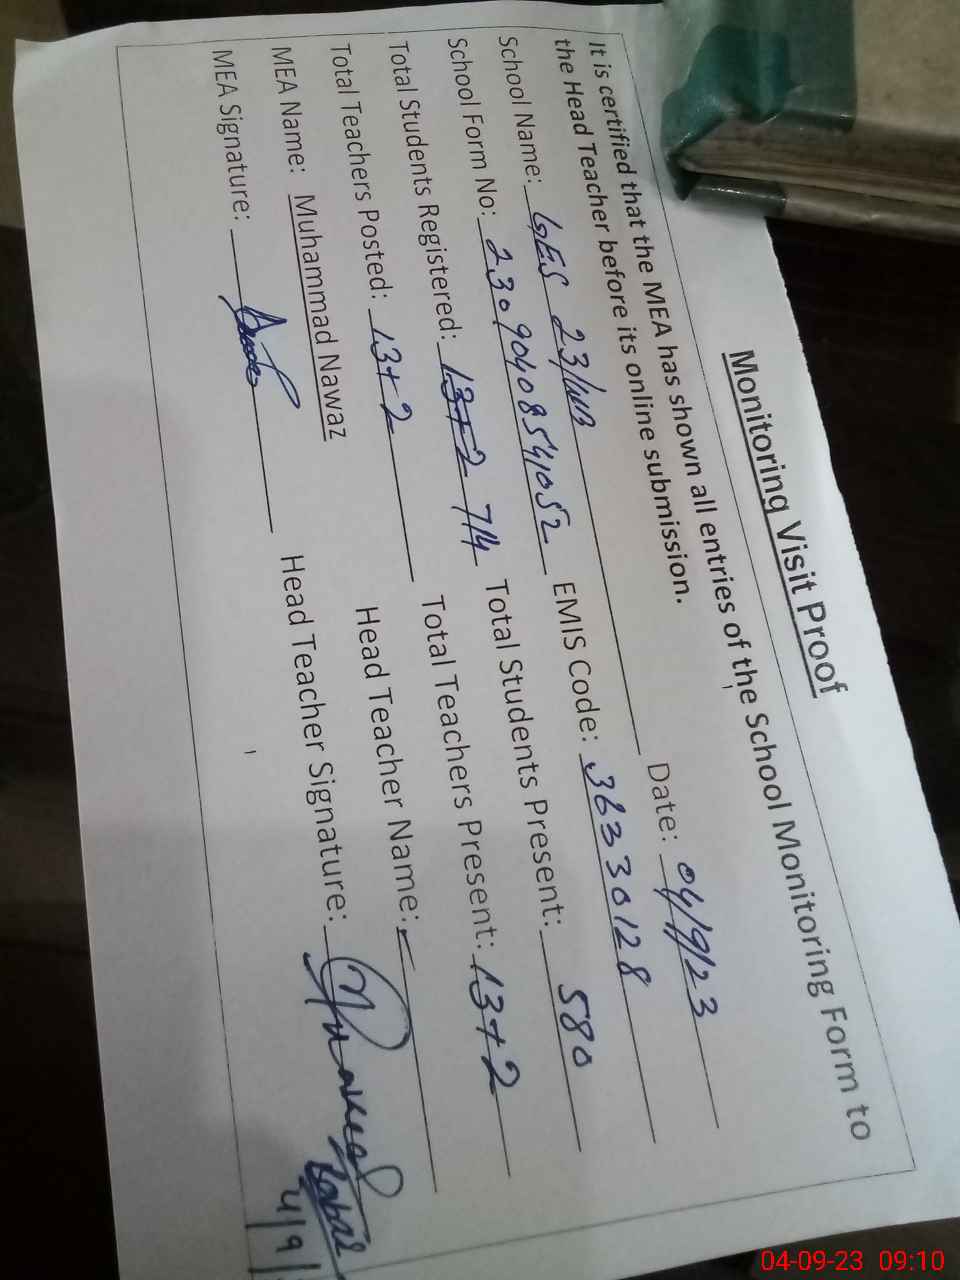 Monitoring Visit Proof
It is certified that the MEA has shown all entries of the School Monitoring Form to
the Head Teacher before its online submission.
School Name: GES 23/WB Date: 04/9/23
School Form No: 2309040854052 EMIS Code: 36330128
Total Students Registered: 13+2 714 Total Students Present: 580
Total Teachers Posted: 13+2 Total Teachers Present: 13+2
MEA Name: Muhammad Nawaz Head Teacher Name:
MEA Signature: Head Teacher Signature:
4/9
04-09-23 09:10